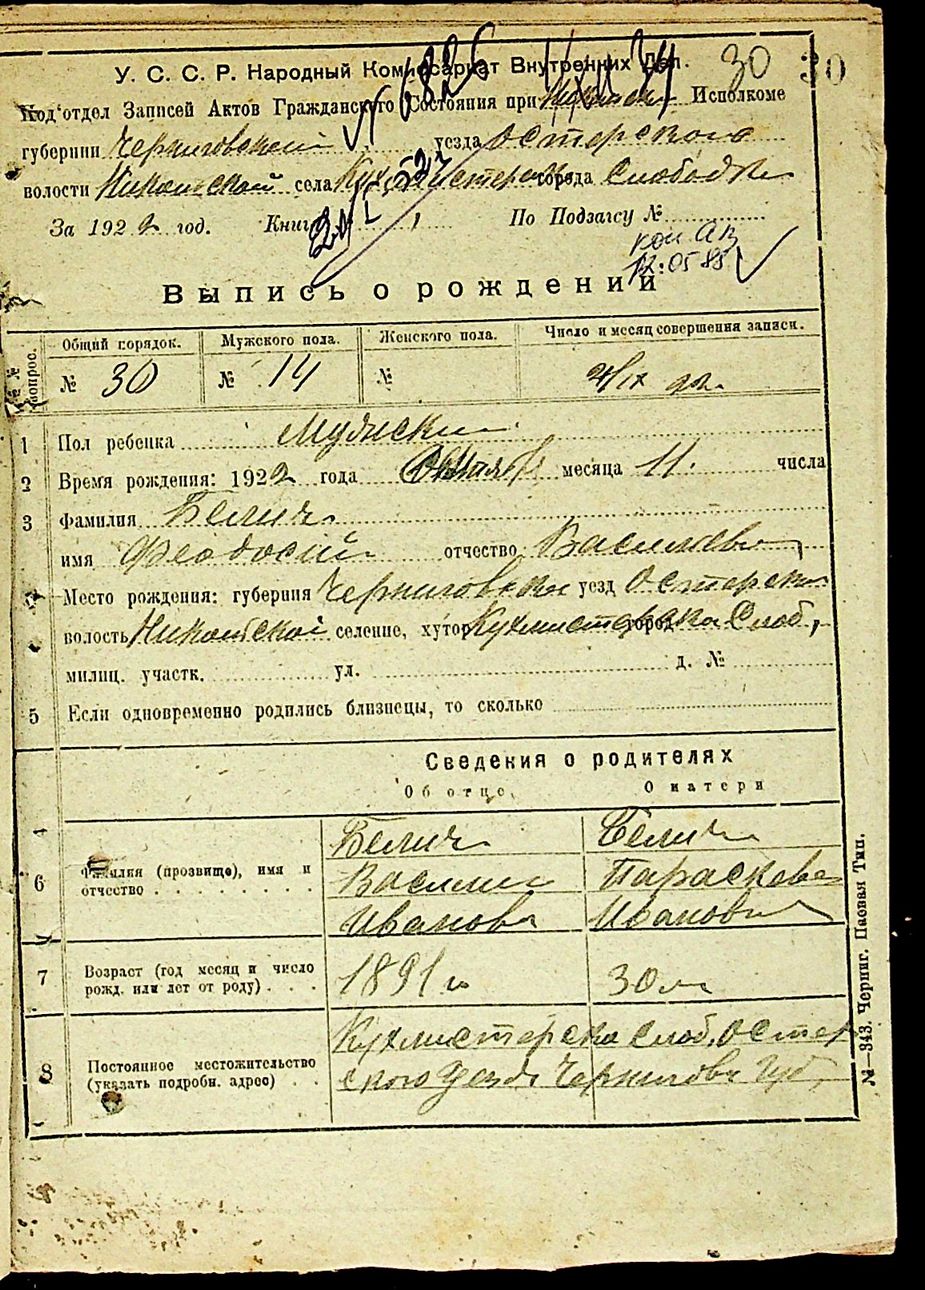 30 30
У. С. С. Р. Народный Комиссариат Внутренних Дел.
Под'отдел Записей Актов Гражданского Состояния при Исполкоме
губернии Черниговской уезда Остерского
волости Никольской села Кухмистерск города Слободки
За 1922 год. Книг По Подзагсу №
коп АВ
12.05.85
Выпись о рождении
№№ вопрос. Общий порядок. Мужского пола. Женского пола. Число и месяц совершения записи.
№ 30 № 14 №
1 Пол ребенка Мужской
2 Время рождения: 1922 года месяца 11. числа
3 Фамилия Белич
имя Феодосий отчество Васильев
Место рождения: губерния Черниговской уезд Остерской
волость Никольской селение, хутор Кухмистерска город Слоб,
милиц. участк. ул. д. №
5 Если одновременно родились близнецы, то сколько
Сведения о родителях
Об отце О матери
6 Фамилия (прозвище), имя и отчество
Белич Белич
Василий Параскева
Иванов Ивановна
7 Возраст (год месяц и число рожд. или лет от роду)
1891 г 30 л
8 Постоянное местожительство (указать подробн. адрес)
Кухмистерска Слоб. Остер
ского Уезда Чернигов Губ,
№—343. Черниг. Паевая Тип.